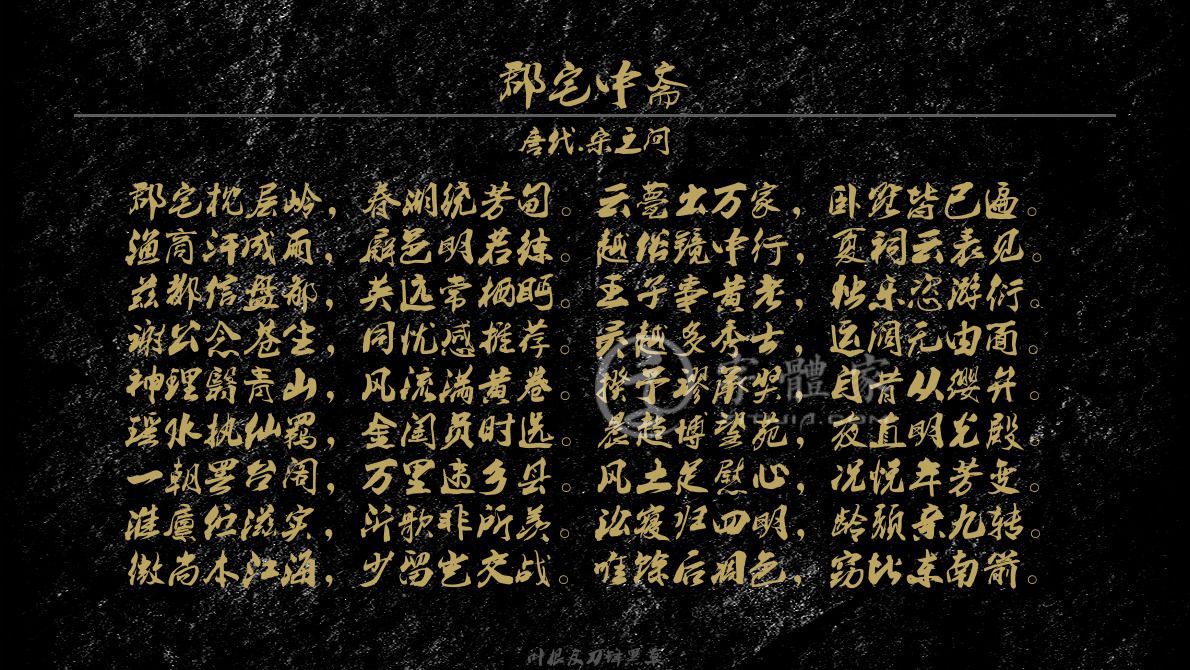 郡宅中斋
唐代.宋之问
郡宅枕层岭，春湖绕芳甸。云甍出万家，卧览皆已遍。
渔商汗成雨，廨邑明若练。越俗镜中行，夏祠云表见。
兹都信盘郁，英远常栖眄。王子事黄老，独乐恣游衍。
谢公念苍生，同忧感推荐。灵越多秀士，运阔无由面。
神理翳青山，风流满黄卷。揆予谬承奖，自昔从缨弁。
瑶水执仙羁，金闺负时选。晨趋博望苑，夜直明光殿。
一朝罢台阁，万里违乡县。风土足慰心，况悦年芳变。
淮廪伫滋实，沂歌非所羡。讼寝归四明，龄颓亲九转。
微尚本江海，少留岂交战。唯馀后凋色，窃比东南箭。
字體家
ZITIJIA.COM
叶根友刀锋黑草